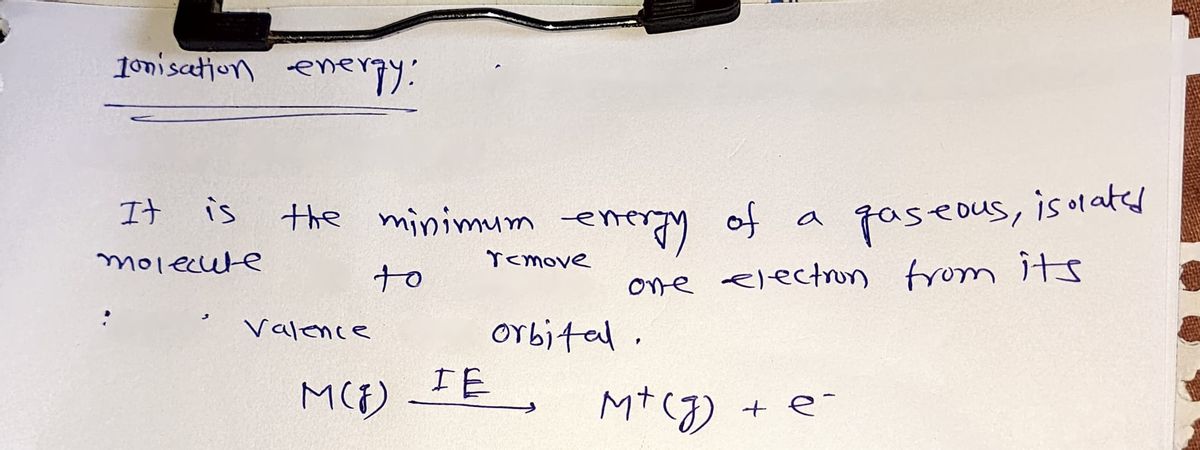 Ionisation energy:
It is the minimum energy of a gaseous, isolated
molecule to remove one electron from its
valence orbital.
M(g) IE→ M+(g) + e-